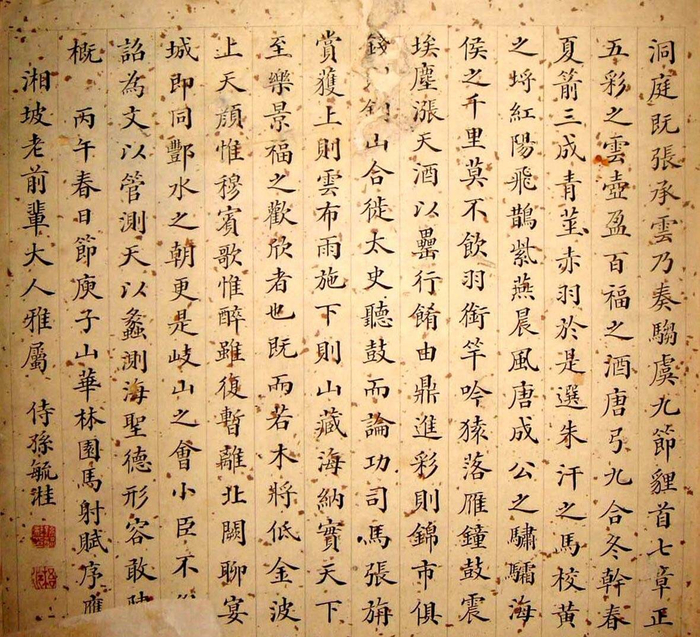 洞庭既張承雲乃奏騶虞九節貍首七章正
五彩之雲壺盈百福之酒唐弓九合冬幹春
夏箭三成青莖赤羽於是選朱汗之馬校黃
之埒紅陽飛鵲紫燕晨風唐成公之驌驦海
侯之千里莫不飲羽銜竿吟猿落雁鐘鼓震
埃塵漲天酒以罍行餚由鼎進彩則錦市俱
錢山合徙太史聽鼓而論功司馬張旃
賞獲上則雲布雨施下則山藏海納實天下
至樂景福之歡欣者也既而若木將低金波
上天顏惟穆賓歌惟醉雖復暫離北闕聊宴
城即同酆水之朝更是岐山之會小臣不
詔為文以管測天以蠡測海聖德形容敢
概 丙午春日節庾子山華林園馬射賦序應
湘坡老前輩大人雅屬 侍孫毓溎